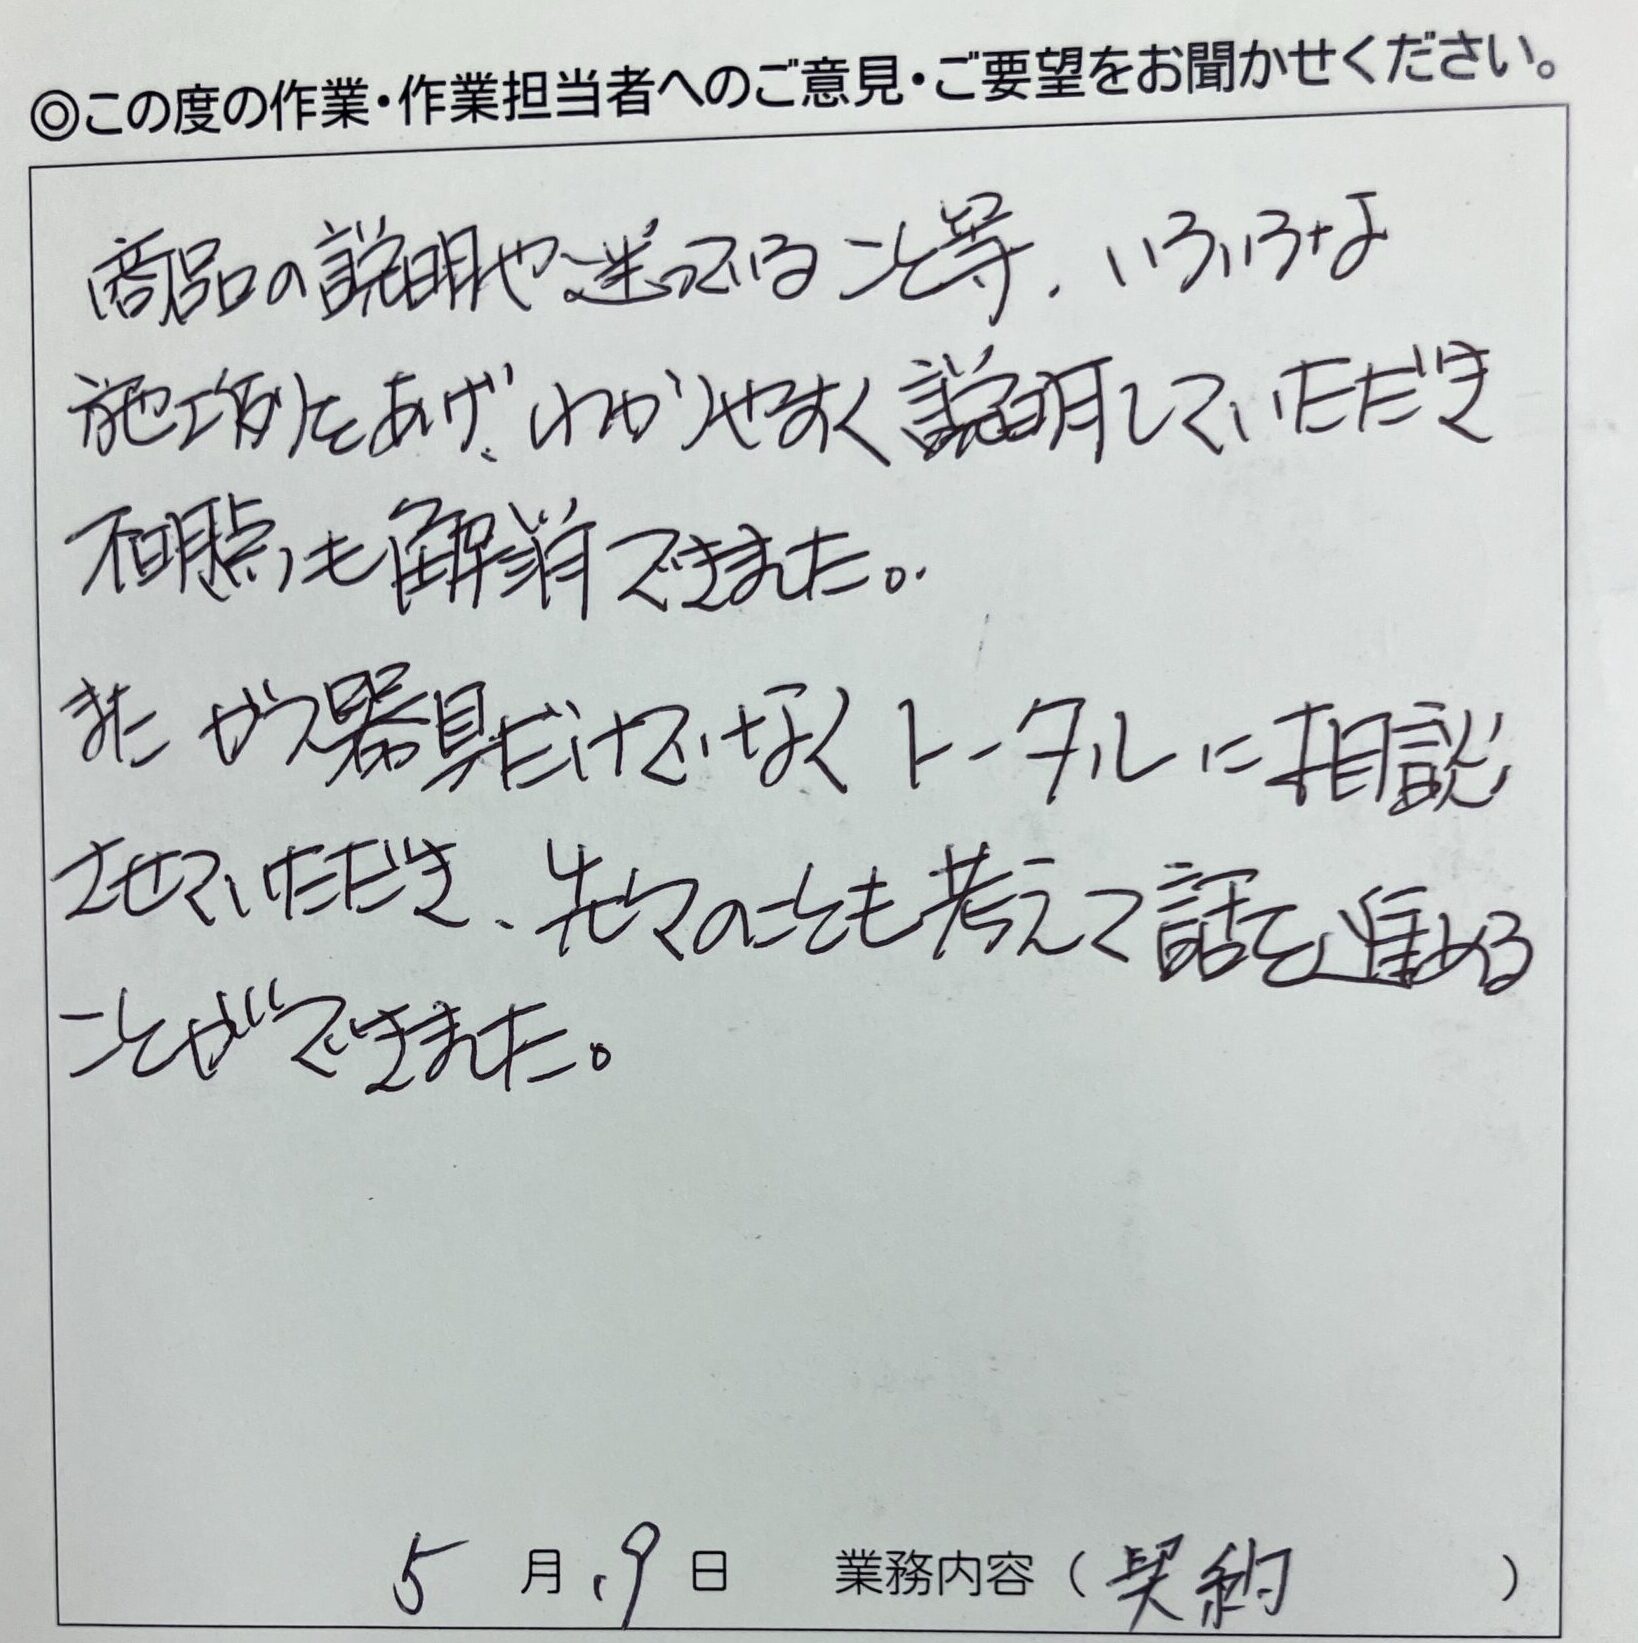 ◎この度の作業・作業担当者へのご意見・ご要望をお聞かせください。
商品の説明や迷っていること等、いろいろな
施工例をあげ、わかりやすく説明していただき
不明点も解消できました。
また ガス器具だけでなくトータルに相談
させていただき、先々のことも考えて話を進める
ことができました。
5月9日 業務内容(契約)